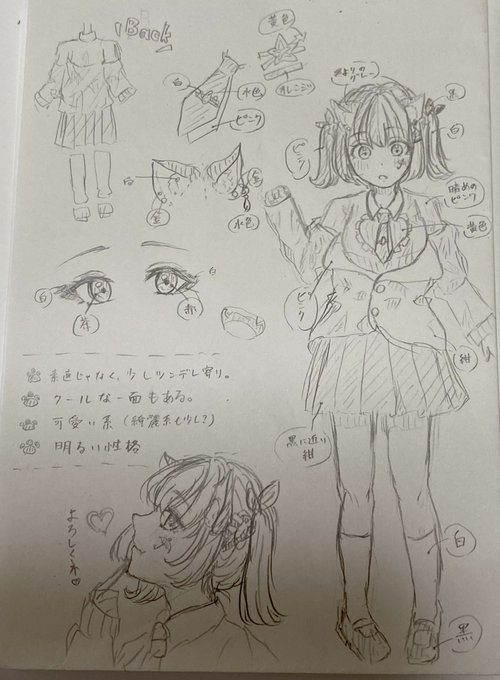 Back
黄色
オレンジ
白
水色
ピンク
黒よりのグレー
黒
白
ピンク
白
金
金
水色
暗めのピンク
黄色
白
白
赤
ピンク
紺
素直じゃなく、少しツンデレ寄り。
クールな一面もある。
可愛い系(綺麗系も少し?)
明るい性格
黒に近い紺
よろしくね♡
白
黒